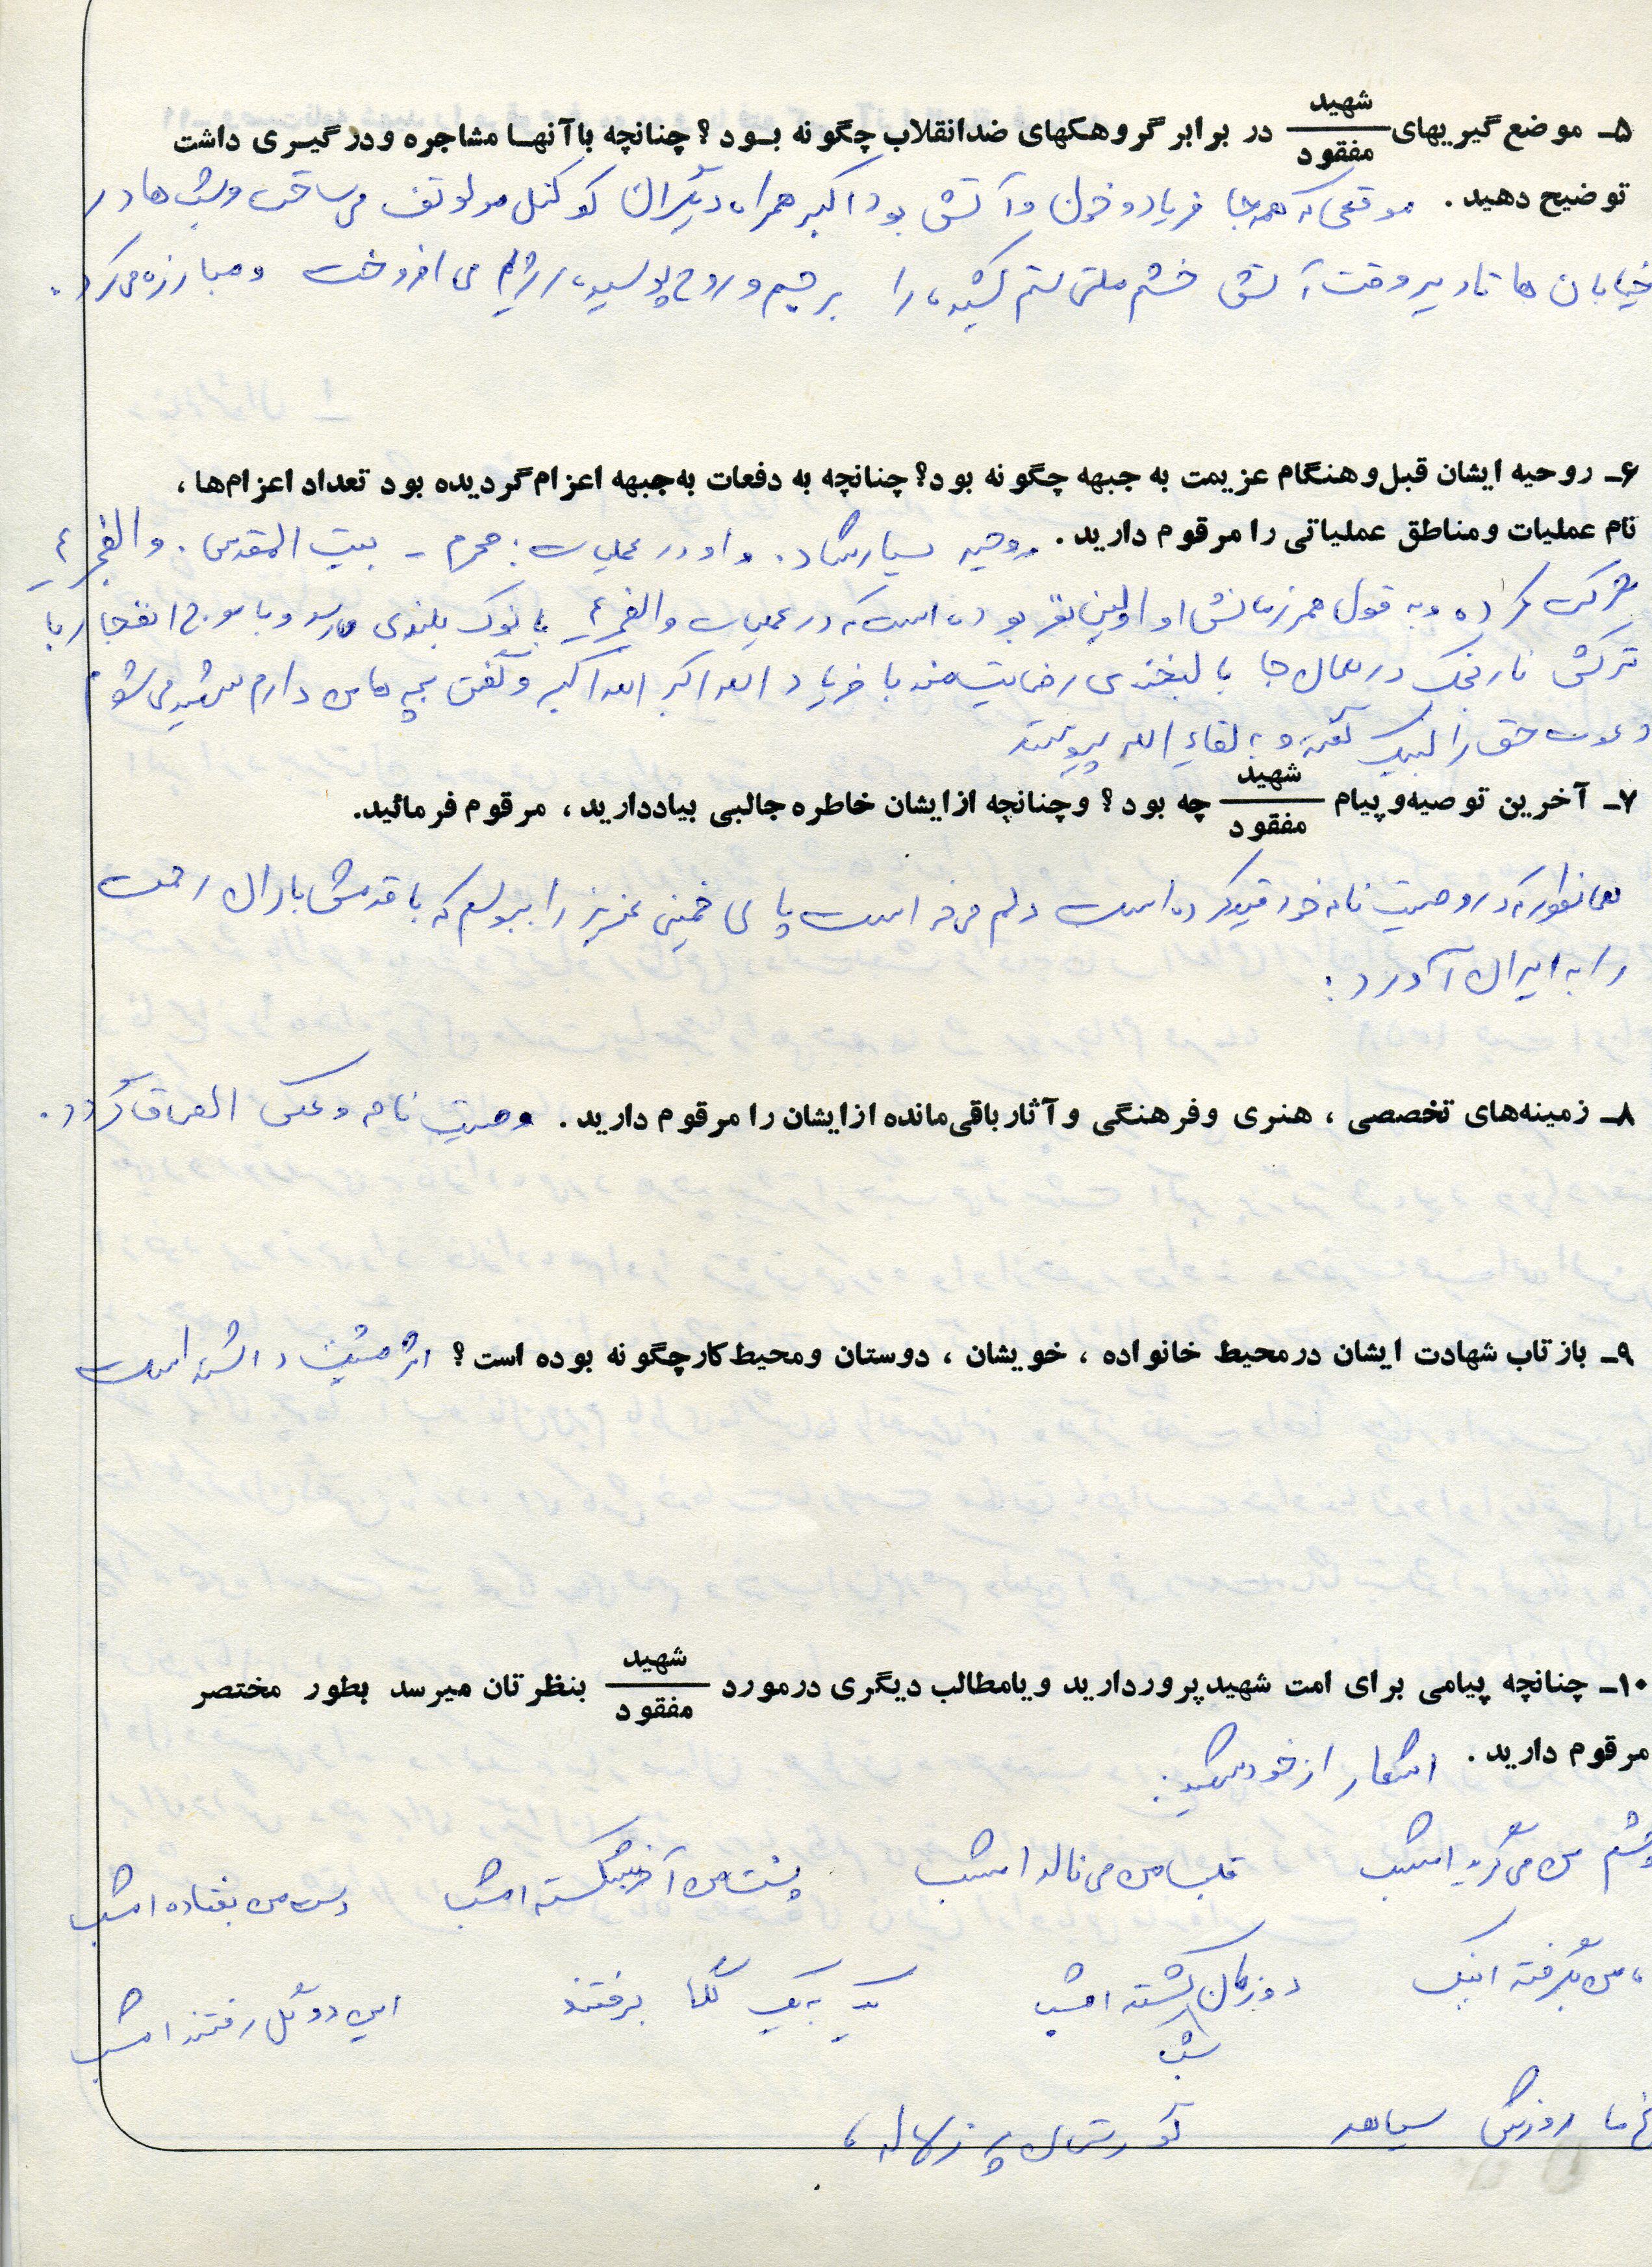 ۵ـ موضع‌گیریهای شهید / مفقود در برابر گروهکهای ضدانقلاب چگونه بود؟ چنانچه با آنها مشاجره و درگیری داشت
توضیح دهید. موقعی که همه جا فریاد و خون و آتش بود اکبر همراه دیگران کوکتل مولوتف می ساخت و شب ها در
خیابان ها تا دیر وقت آتش خشم ملتی ستم کشیده را بر جسم و روح پوسیده رژیم می افروخت و مبارزه می کرد.
۶ـ روحیه ایشان قبل و هنگام عزیمت به جبهه چگونه بود؟ چنانچه به دفعات به جبهه اعزام گردیده بود تعداد اعزام‌ها،
نام عملیات و مناطق عملیاتی را مرقوم دارید. روحیه بسیار شاد. و او در عملیات: محرم - بیت المقدس. والفجر ۴
شرکت کرده و به قول همرزمانش او اولین نفر بوده است که در عملیات والفجر ۴ به نوک بلندی می رسد و با موج انفجار یا
ترکش نارنجک در همان جا با لبخندی رضایتمند با فریاد الله اکبر الله اکبر و گفتن بچه ها من دارم شهید می شوم
دعوت حق را لبیک گفته و به لقاء الله پیوستند
۷ـ آخرین توصیه و پیام شهید / مفقود چه بود؟ و چنانچه از ایشان خاطره جالبی بیاد دارید، مرقوم فرمائید.
همانطور که در وصیت نامه خود قید کرده است دلم می خواست پای خمینی عزیز را ببوسم که با قدمش باران رحمت
را به ایران آورد:
۸ـ زمینه‌های تخصصی، هنری و فرهنگی و آثار باقی‌مانده از ایشان را مرقوم دارید. وصیت نامه و عکس الصاق گردد.
۹ـ بازتاب شهادت ایشان در محیط خانواده، خویشان، دوستان و محیط کار چگونه بوده است؟ اثر مثبت داشته است
۱۰ـ چنانچه پیامی برای امت شهیدپرور دارید و یا مطالب دیگری در مورد شهید / مفقود بنظرتان میرسد بطور مختصر
مرقوم دارید. اشعار از خود شهید:
چشم من می گرید امشب قلب من می نالد امشب پشت من آخر شکسته امشب دست من بفتاده امشب
من بگرفته اینک دوزمان گشته امشب یک به یک گلها برفتند این دو گل رفتند امشب
شب
ما روزش سیاهه